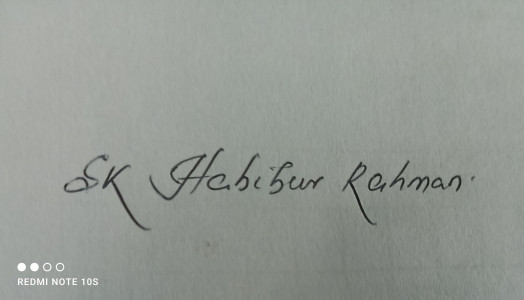 SK Habibur Rahman.
REDMI NOTE 10S